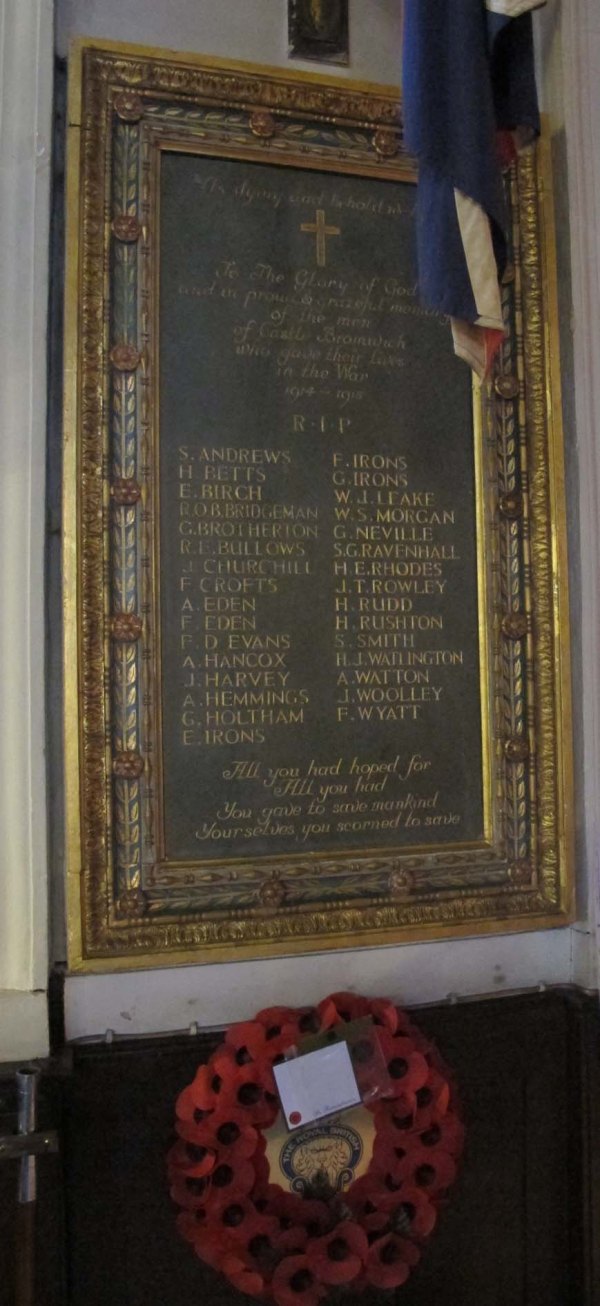 As dying and behold
To The Glory of God
and in proud & grateful memory
of the men
of Castle Bromwich
who gave their lives
in the War
1914-1918
R·I·P
S. ANDREWS
H BETTS
E. BIRCH
R.O.B. BRIDGEMAN
G. BROTHERTON
R.E. BULLOWS
J CHURCHILL
F CROFTS
A. EDEN
F. EDEN
F. D EVANS
A. HANCOX
J. HARVEY
A. HEMMINGS
G. HOLTHAM
E. IRONS
F. IRONS
G. IRONS
W. J. LEAKE
W. S. MORGAN
G. NEVILLE
S.G. RAVENHALL
H E. RHODES
J. T. ROWLEY
H. RUDD
H. RUSHTON
S. SMITH
H. J. WATLINGTON
A. WATTON
J. WOOLLEY
F. WYATT
All you had hoped for
All you had
You gave to save mankind
Yourselves you scorned to save
THE ROYAL BRITISH